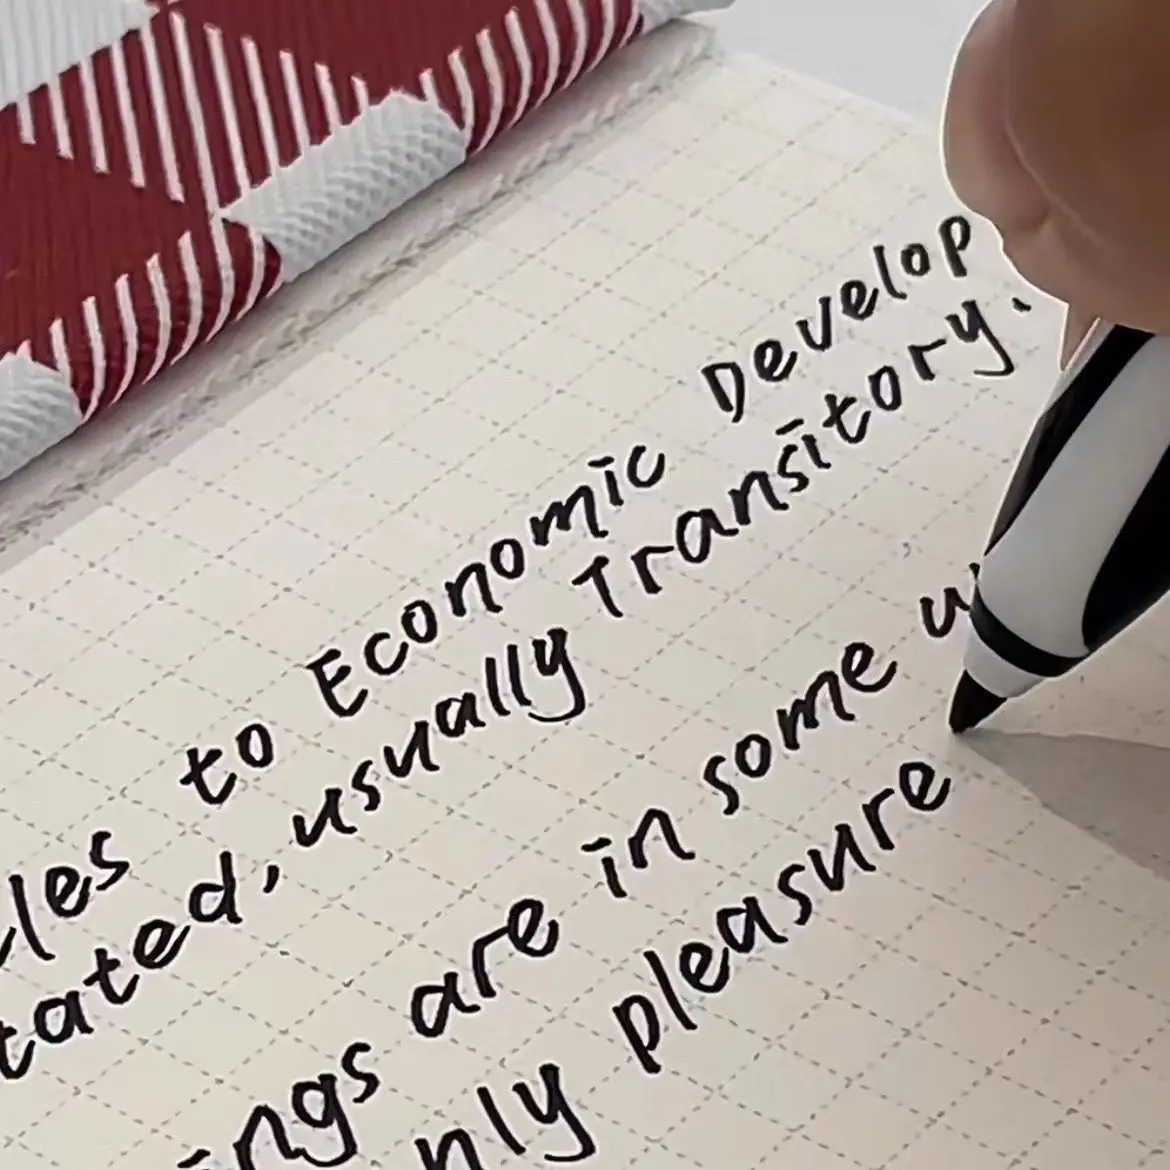 les to Economic Develop
tated, usually Transitory.
ings are in some w
nly pleasure